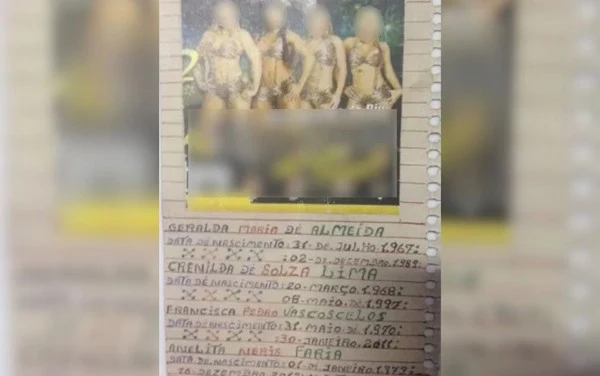 GERALDA MARIA DE ALMEIDA
DATA DE NASCIMENTO: 31. DE JULHO. 1967:
:02- DE DEZEMBRO. 1989:
CRENILDA DE SOLZA LIMA
DATA DE NASCIMENTO: 20- MARÇO. 1968:
08- MAIO. DE 1997:
FRANCISCA PEDRO VASCOSCELOS
DATA DE NASCIMENTO: 31. MAIO DE 1970:
:30- JANEIRO. 2011:
ANELITA NERIS FARIA
DATA DE NASCIMENTO: 01- DE JANEIRO. 1973:
16- DEZEMBRO